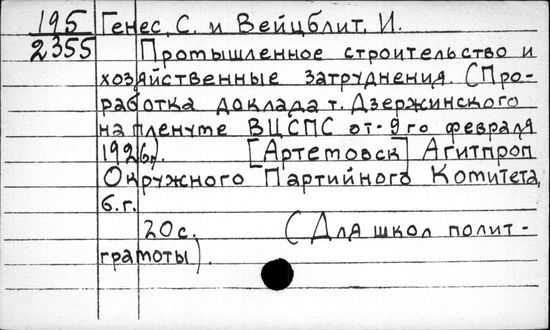 195 Генес, С. и Вейцблит, И.
2355 Промышленное строительство и
хозяйственные затруднения. (Про-
работка доклада т. Дзержинского
на пленуме ВЦСПС от 9го февраля
1926г.). [Артемовск] Агитпроп
Окружного Партийного Комитета,
б.г.
20с. (Для школ полит-
грамоты).